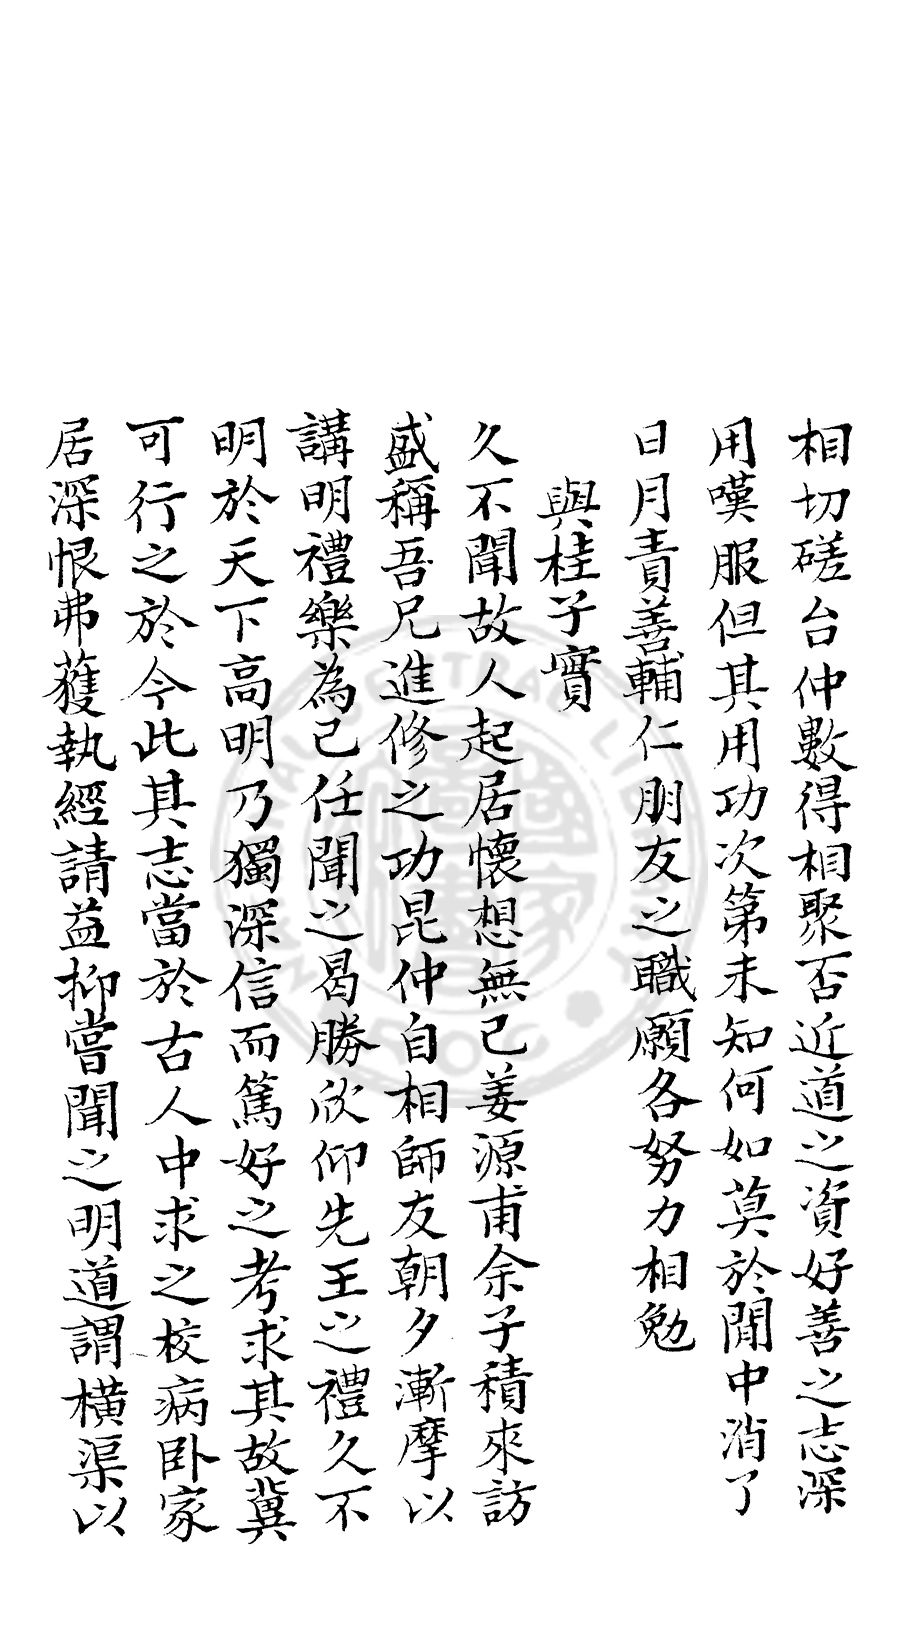 相切磋台仲數得相聚否近道之資好善之志深
用嘆服但其用功次第未知何如莫於閒中消了
日月責善輔仁朋友之職願各努力相勉
與桂子實
久不聞故人起居懷想無已姜源甫余子積來訪
盛稱吾兄進修之功昆仲自相師友朝夕漸摩以
講明禮樂為己任聞之曷勝欣仰先王之禮久不
明於天下高明乃獨深信而篤好之考求其故冀
可行之於今此其志當於古人中求之校病臥家
居深恨弗獲執經請益抑嘗聞之明道謂橫渠以